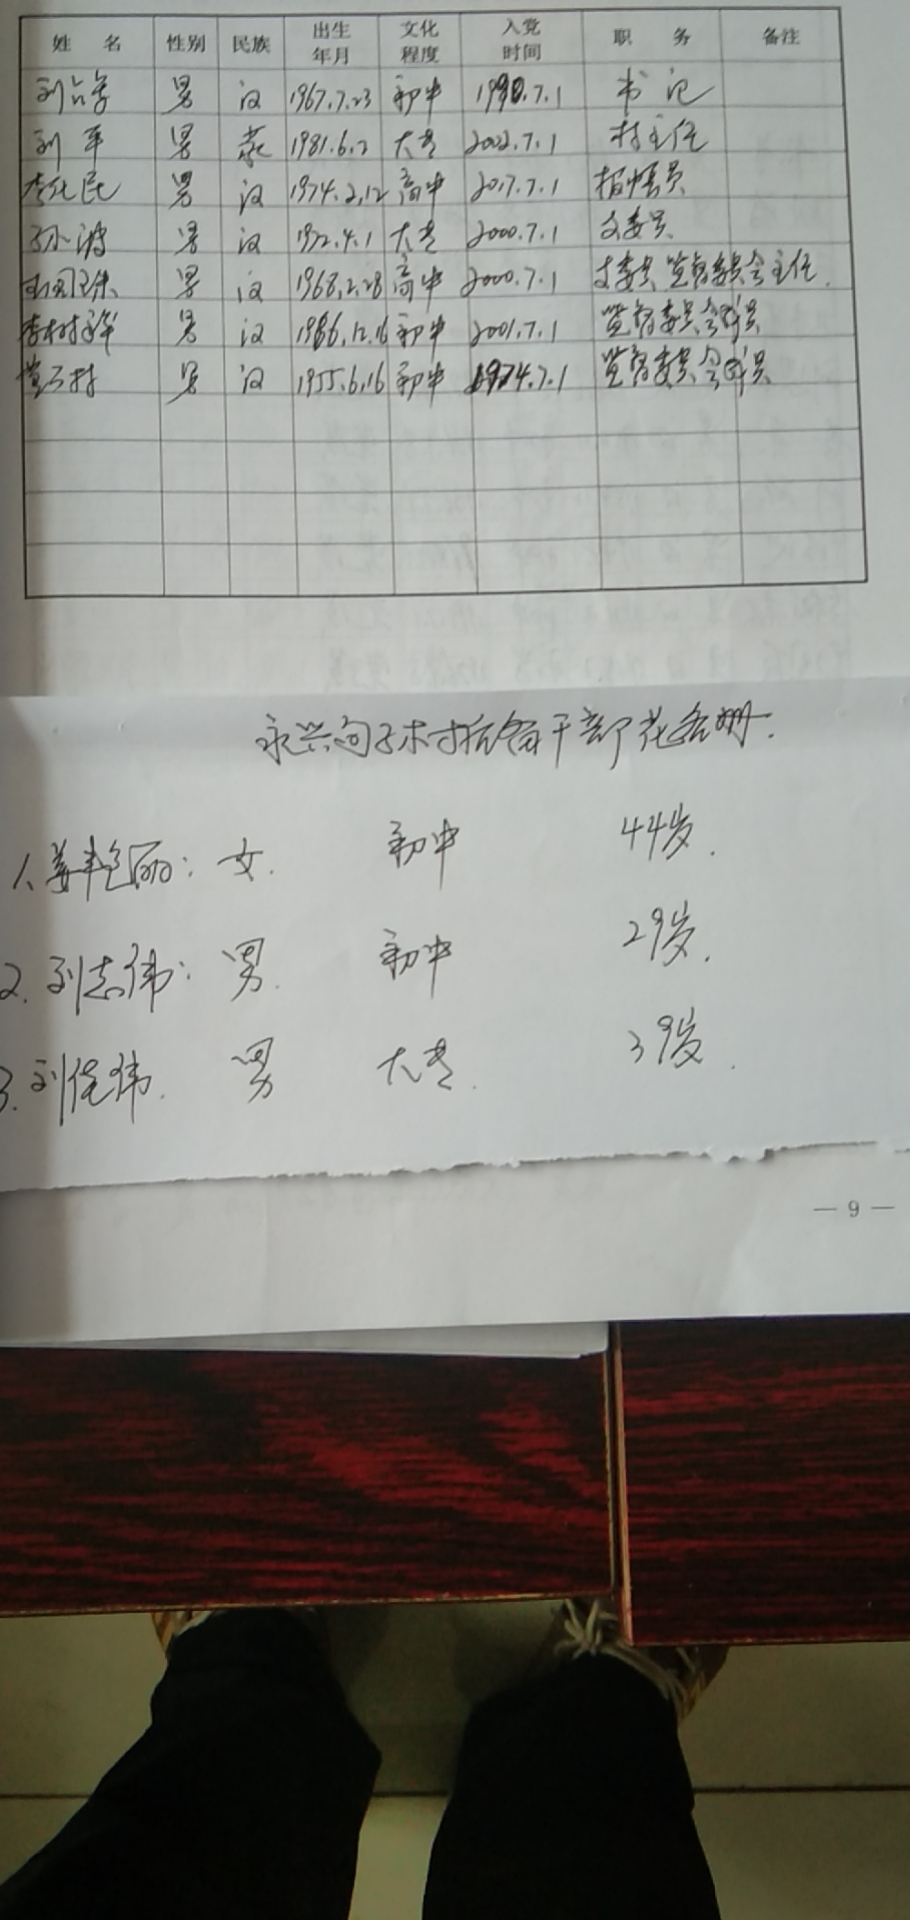 姓 名 性别 民族 出生年月 文化程度 入党时间 职 务 备注
刘 男 汉 1967.7.23 初中 1990.7.1 书记
刘平 男 蒙 1981.6.2 大专 2002.7.1 村主任
李 民 男 汉 1974.2.12 高中 2017.7.1 员
孙波 男 汉 1972.4.1 大专 2000.7.1 支委员
男 汉 1968.2.28 高中 2000.7.1 支委员 监督委员会主任
李树 男 汉 1966.12.16 初中 2001.7.1 监督委员会成员
男 汉 1955.6.16 初中 1974.7.1 监督委员会成员
永兴 子 村后备干部花名册.
1、姜艳丽: 女. 初中 44岁.
2. 刘志伟: 男. 初中 29岁.
3. 刘佳伟. 男 大专. 39岁.
— 9 —